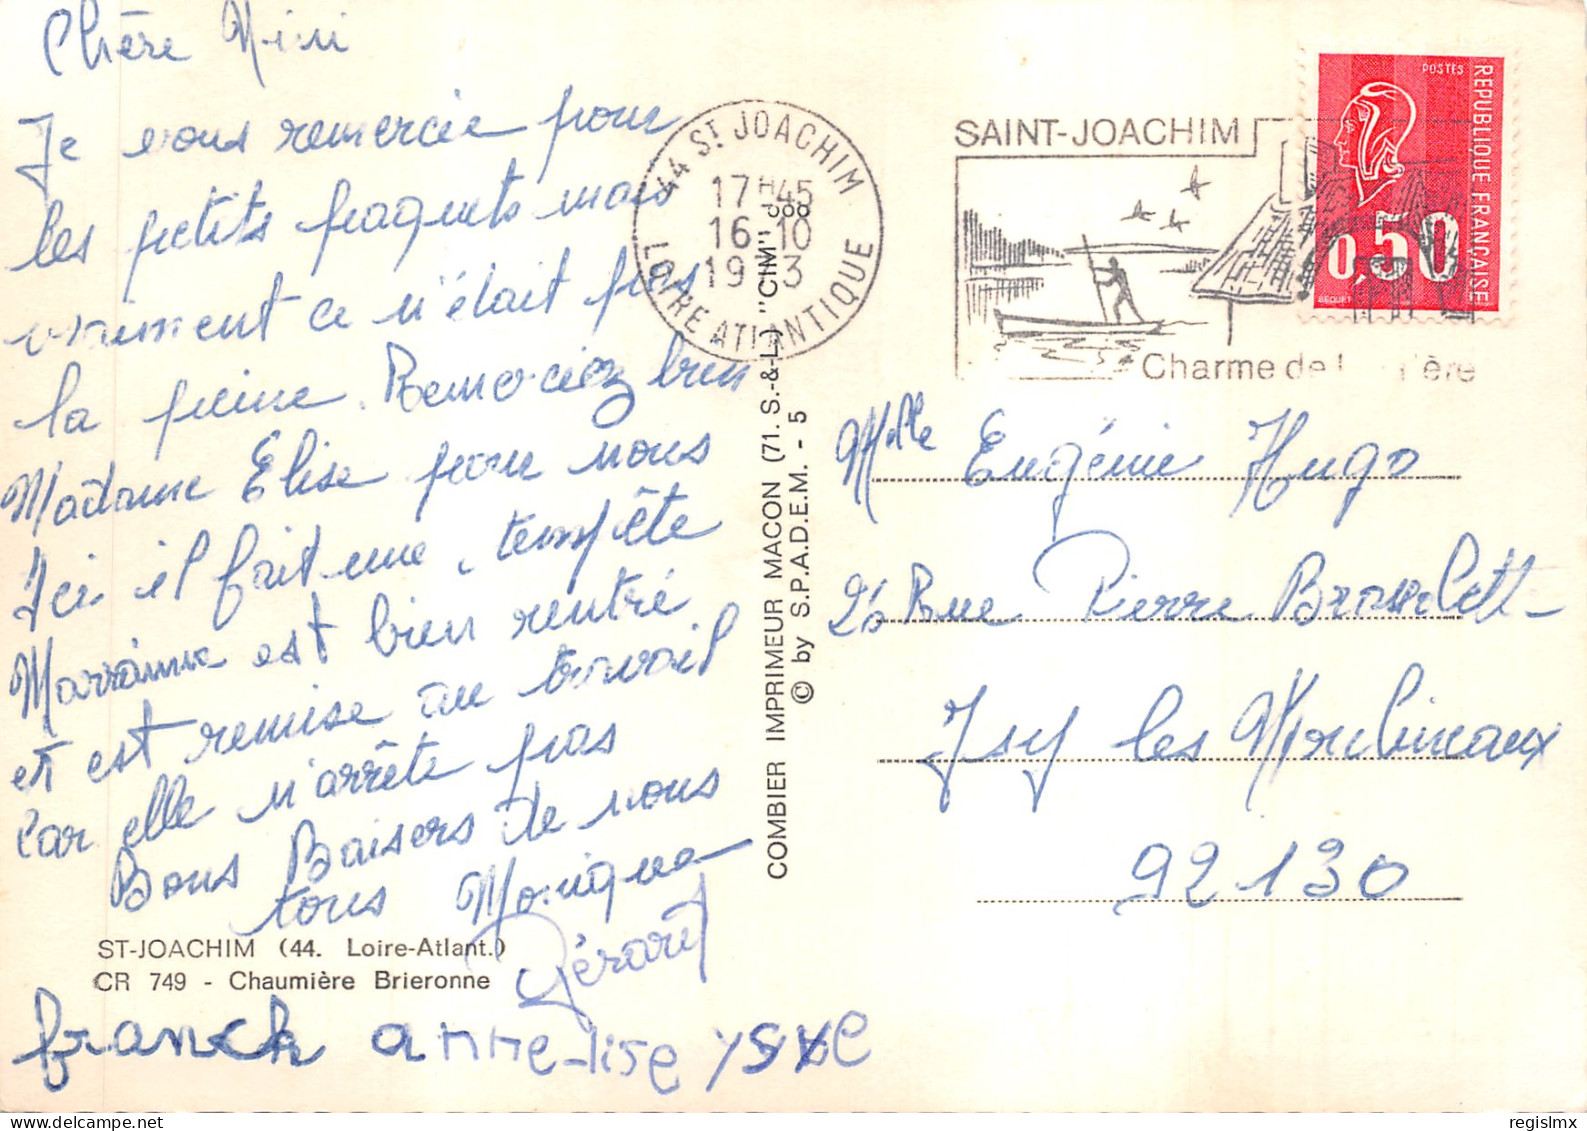 Chère Nini
Je vous remercie pour
les petits paquets mais
vraiment ce n'était pas
la peine. Remerciez bien
Madame Elise pour nous
Ici il fait une tempête
Marraine est bien rentré
et est remise au travail
car elle n'arrête pas
Bons Baisers de nous
tous Monique
Gérard
ST-JOACHIM (44. Loire-Atlant.)
CR 749 - Chaumière Brieronne
franck anne-lise
COMBIER IMPRIMEUR MACON (71. S.-&-L.) "CIM"
© by S.P.A.D.E.M. - 5
44 ST JOACHIM
17H45
16-10
1973
LOIRE ATLANTIQUE
SAINT-JOACHIM
Charme de
POSTES
REPUBLIQUE FRANÇAISE
0,50
BEQUET
Mlle Eugénie Hugo
26 Rue Pierre Brossolette
Issy les Moulineaux
92130
© regislmx